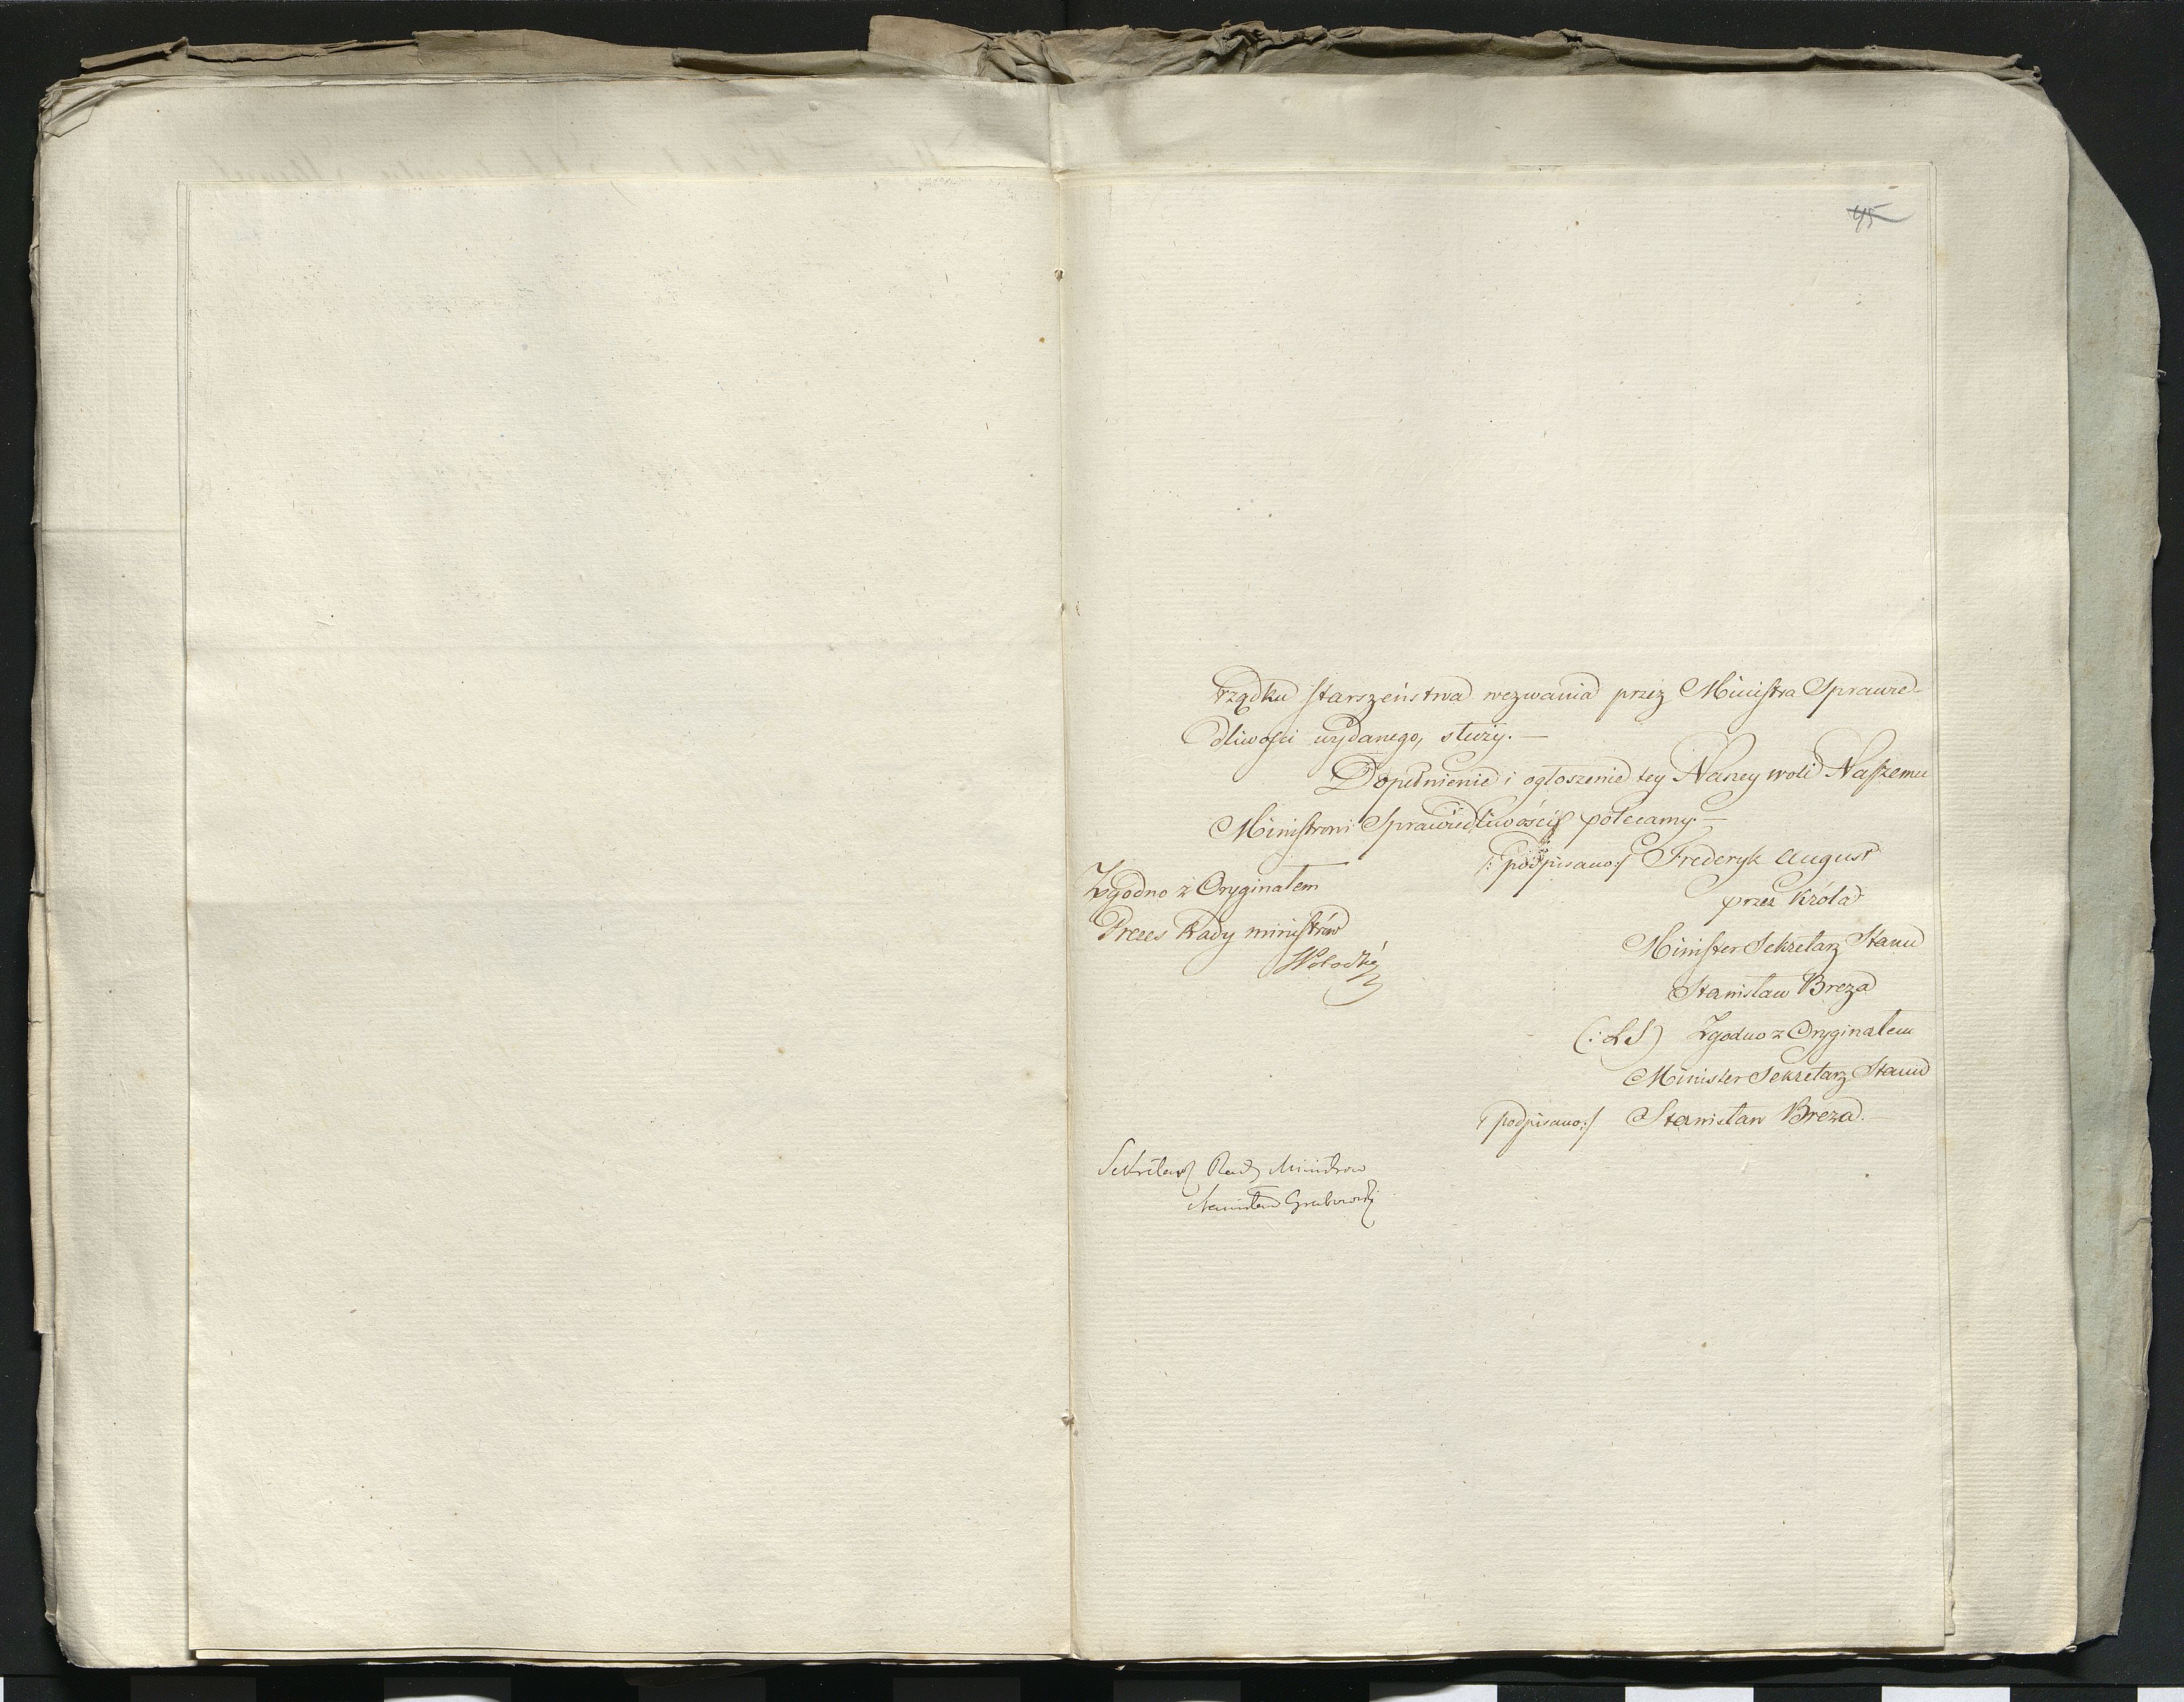 45
rządku starszeństwa wezwania przez Ministra Sprawie-
dliwości wydanego, służy. —
Dopełnienie i ogłoszenie tey Naszey woli Naszemu
Ministrowi Sprawiedliwości polecamy. —
/: podpisano :/ Frederyk August
przez Króla
Minister Sekretarz Stanu
Stanisław Breza
(: LS) Zgodno z Oryginałem
Minister Sekretarz Stanu
/ podpisano :/ Stanisław Breza. —
Zgodno z Oryginałem
Prezes Rady ministrów
Sekretarz Rady Ministrow
Stanisław Grabowski